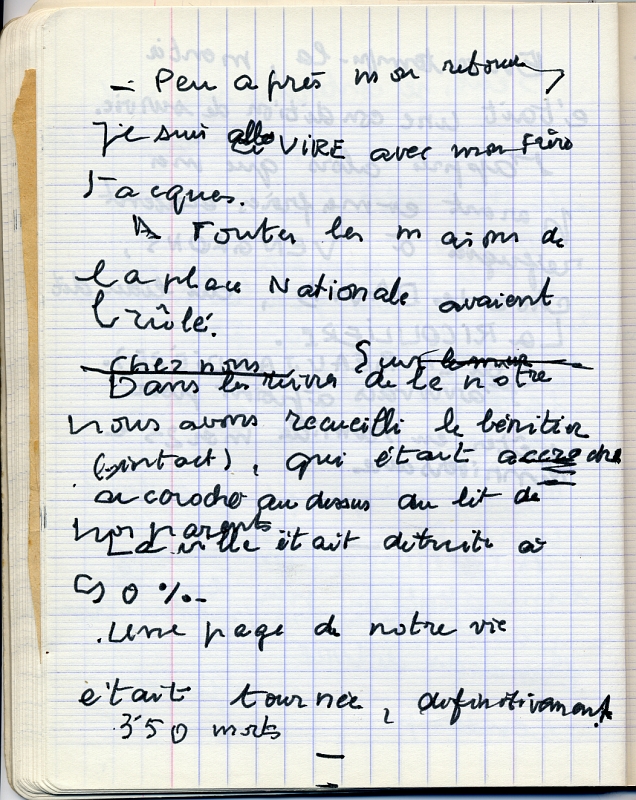 - Peu après mon retour,
je suis allé à VIRE avec mon Frère
Jacques.
A Toutes les maisons de
la place Nationale avaient
brûlé.
chez nous Sur le mur
Dans les ruines de la notre
nous avons recueilli le bénitier
(intact), qui était accroché
accroché au dessus du lit de
nos parents
La ville était détruite à
90 %.
.Une page de notre vie
était tournée, définitivement.
350 morts